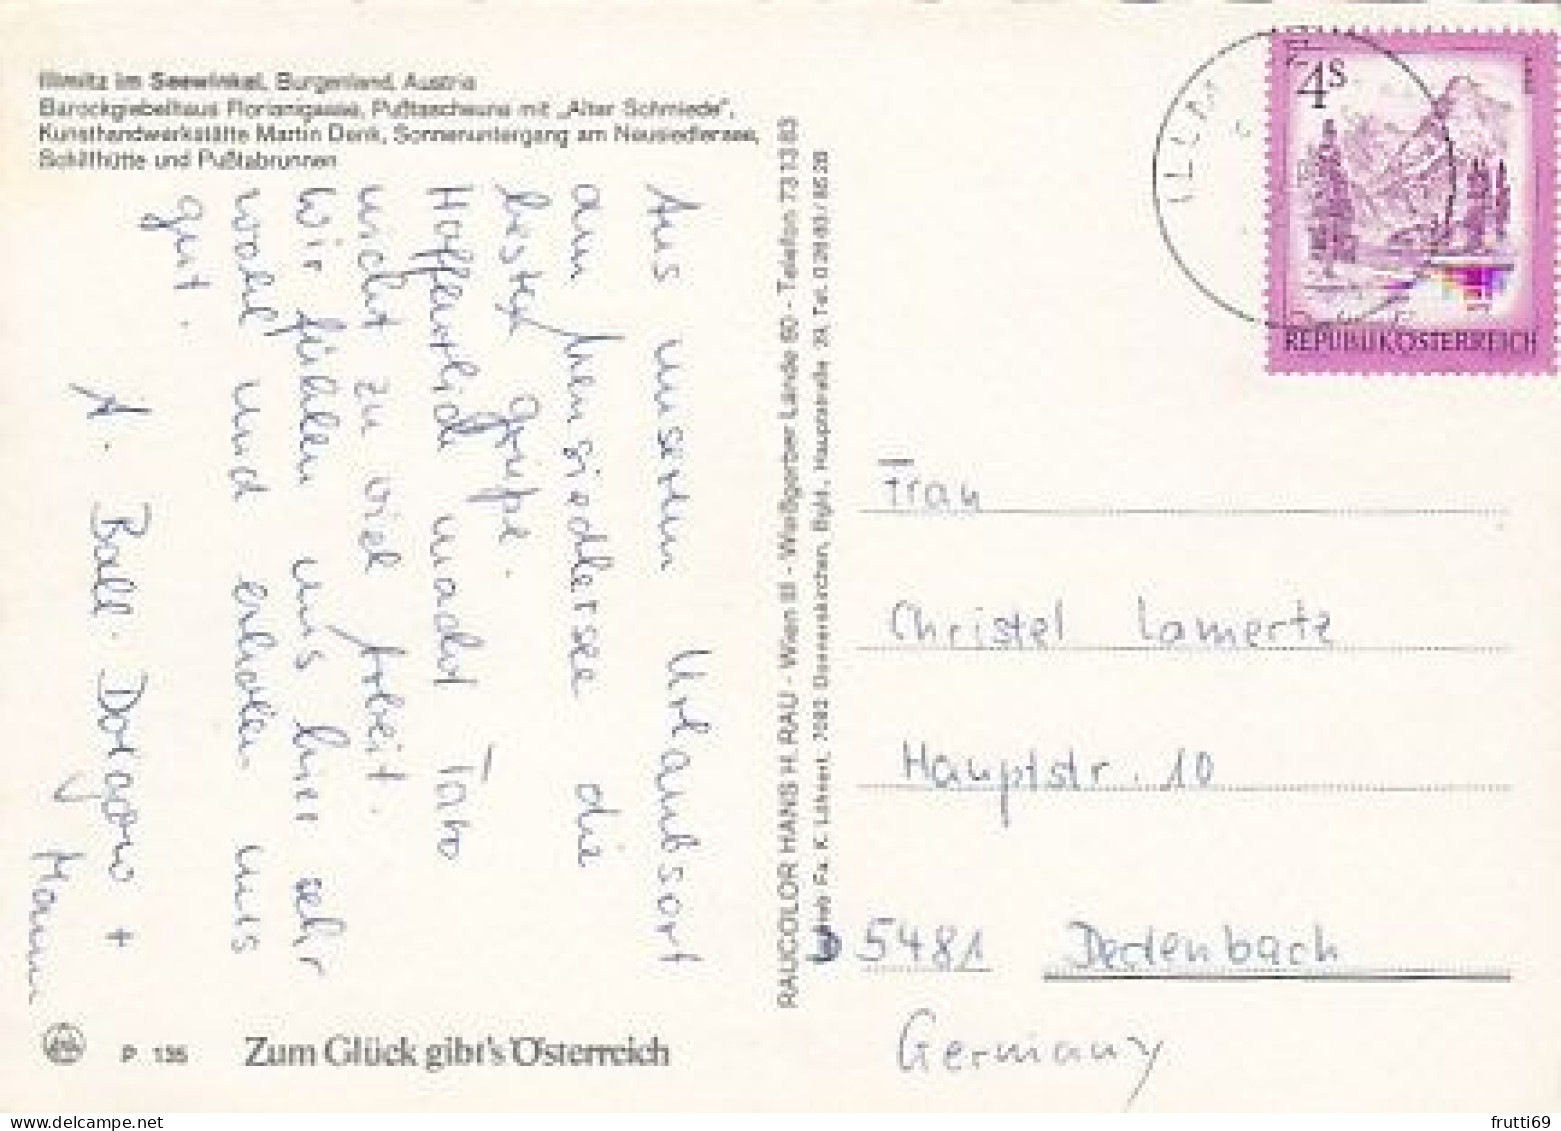 Illmitz im Seewinkel, Burgenland, Austria
Barockgiebelhaus Florianigasse, Pußtascheune mit „Alter Schmiede“,
Kunsthandwerkstätte Martin Denk, Sonnenuntergang am Neusiedlersee,
Schilfhütte und Pußtabrunnen
Aus unserem Urlaubsort
am Neusiedlersee die
besten Grüße.
Hoffentlich macht Tabo
nicht zu viel Arbeit.
Wir fühlen uns hier sehr
wohl und erholen uns
gut.
A. Ball. Dorgono +
P 135
Zum Glück gibt's Österreich
RAUCOLOR HANS H. RAU - Wien III - Weißgerber Lände 60 - Telefon 73 13 83
Fa. K. Lähnert, 7082 Donnerskirchen, Bgld., Hauptstraße 29, Tel. 0 26 83 / 85 28
4S
REPUBLIK ÖSTERREICH
Frau
Christel Lamertz
Hauptstr. 10
5481 Dedenbach
Germany
frutti69